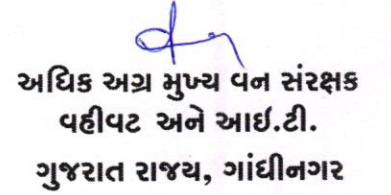 અધિક અગ્ર મુખ્ય વન સંરક્ષક
વહીવટ અને આઈ.ટી.
ગુજરાત રાજય, ગાંધીનગર